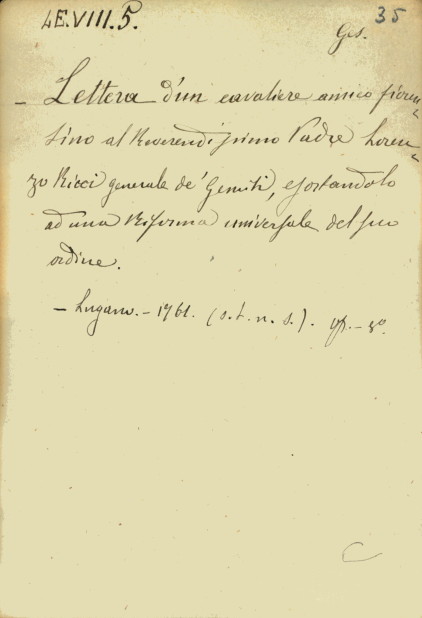 4E.VIII.5.
35
Ges.
- Lettera d'un cavaliere amico fioren=
tino al Reverendissimo Padre Loren=
zo Ricci generale de' Gesuiti, esortandolo
ad una Riforma universale del suo
ordine.
- Lugano. - 1761. (s.t.n.s.). - 8º.
C